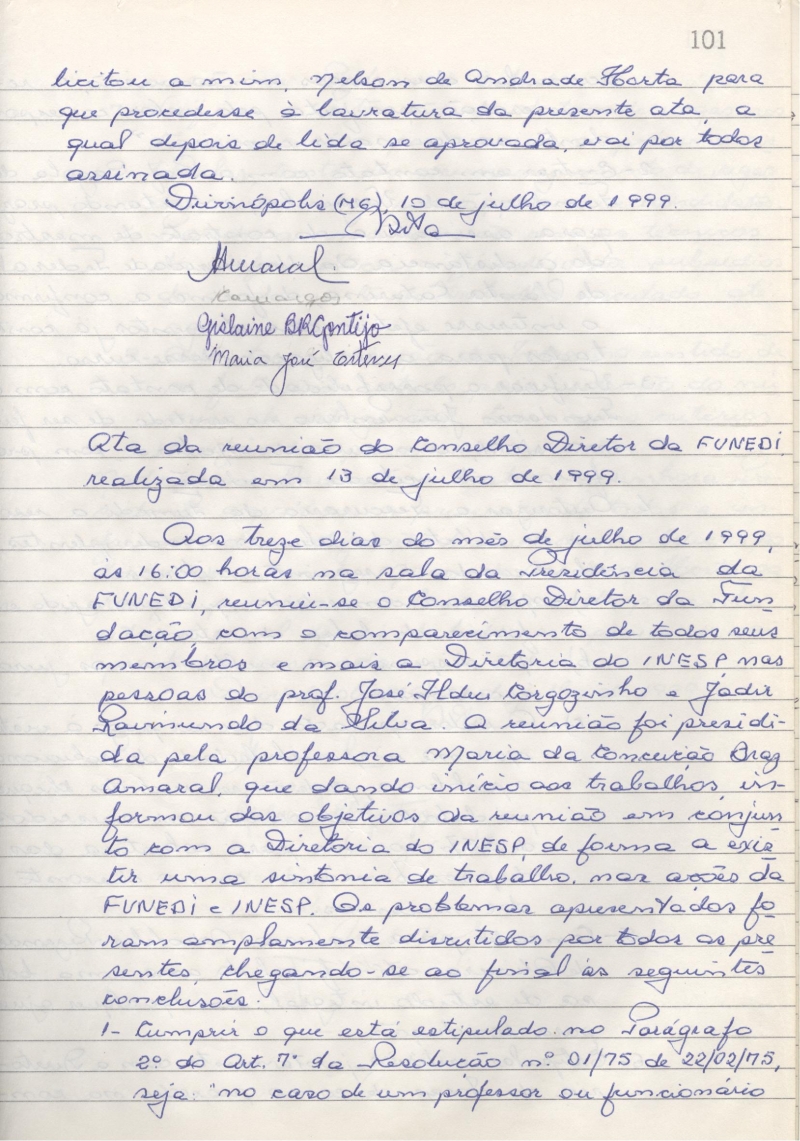 101
licitou a mim, Nelson de Andrade Horta para
que procedesse à lavratura da presente ata, a
qual depois de lida se aprovada, vai por todos
assinada.
Divinópolis (MG), 10 de julho de 1999.
Amaral.
Camargos
Gislaine BRGontijo
Maria José Esteves
Ata da reunião do Conselho Diretor da FUNEDI
realizada em 13 de julho de 1999.
Aos treze dias do mês de julho de 1999,
às 16:00 horas na sala da Presidência da
FUNEDI, reuniu-se o Conselho Diretor da Fun
dação com o comparecimento de todos seus
membros e mais a Diretoria do INESP, nas
pessoas do prof. José Ildeu Corgozinho e Jadir
Raimundo da Silva. A reunião foi presidi-
da pela professora Maria da Conceição Braz
Amaral, que dando início aos trabalhos, in-
formou das objetivos da reunião em conjun
to com a Diretoria do INESP, de forma a exis
tir uma sintonia de trabalho, nas ações da
FUNEDI e INESP. Os problemas apresentados fo
ram amplamente discutidos por todos os pre
sentes, chegando-se ao final às seguintes
conclusões:
1- Cumprir o que está estipulado no Parágrafo
2º do Art. 7º da Resolução nº 01/75 de 22/02/75,
seja: "no caso de um professor ou funcionário